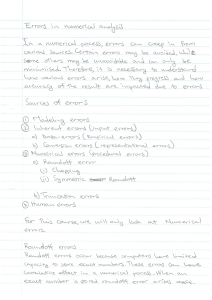 Errors in numerical analysis
In a numerical process, errors can creep in from
various sources. Certain errors may be avoided, while
some others may be unavoidable and can only be
minimised. Therefore, it is necessary to understand
how various errors arise, how they progress and how
accuracy of the result are impacted due to errors
Sources of errors
① Modeling errors
② Inherent errors (input errors)
a) Data errors (Empirical errors)
b) Conversion errors (representational errors)
③ Numerical errors (procedural errors)
a) Roundoff error
i) Chopping
ii) Symmetric Roundoff
b) Truncation errors
④ Human errors
For this course, we will only look at Numerical
errors.
Roundoff errors
Roundoff errors occur because computers have limited
capacity to store exact numbers. These errors can have
cumulative effect in a numerical process. When an
exact number is stored roundoff error arises